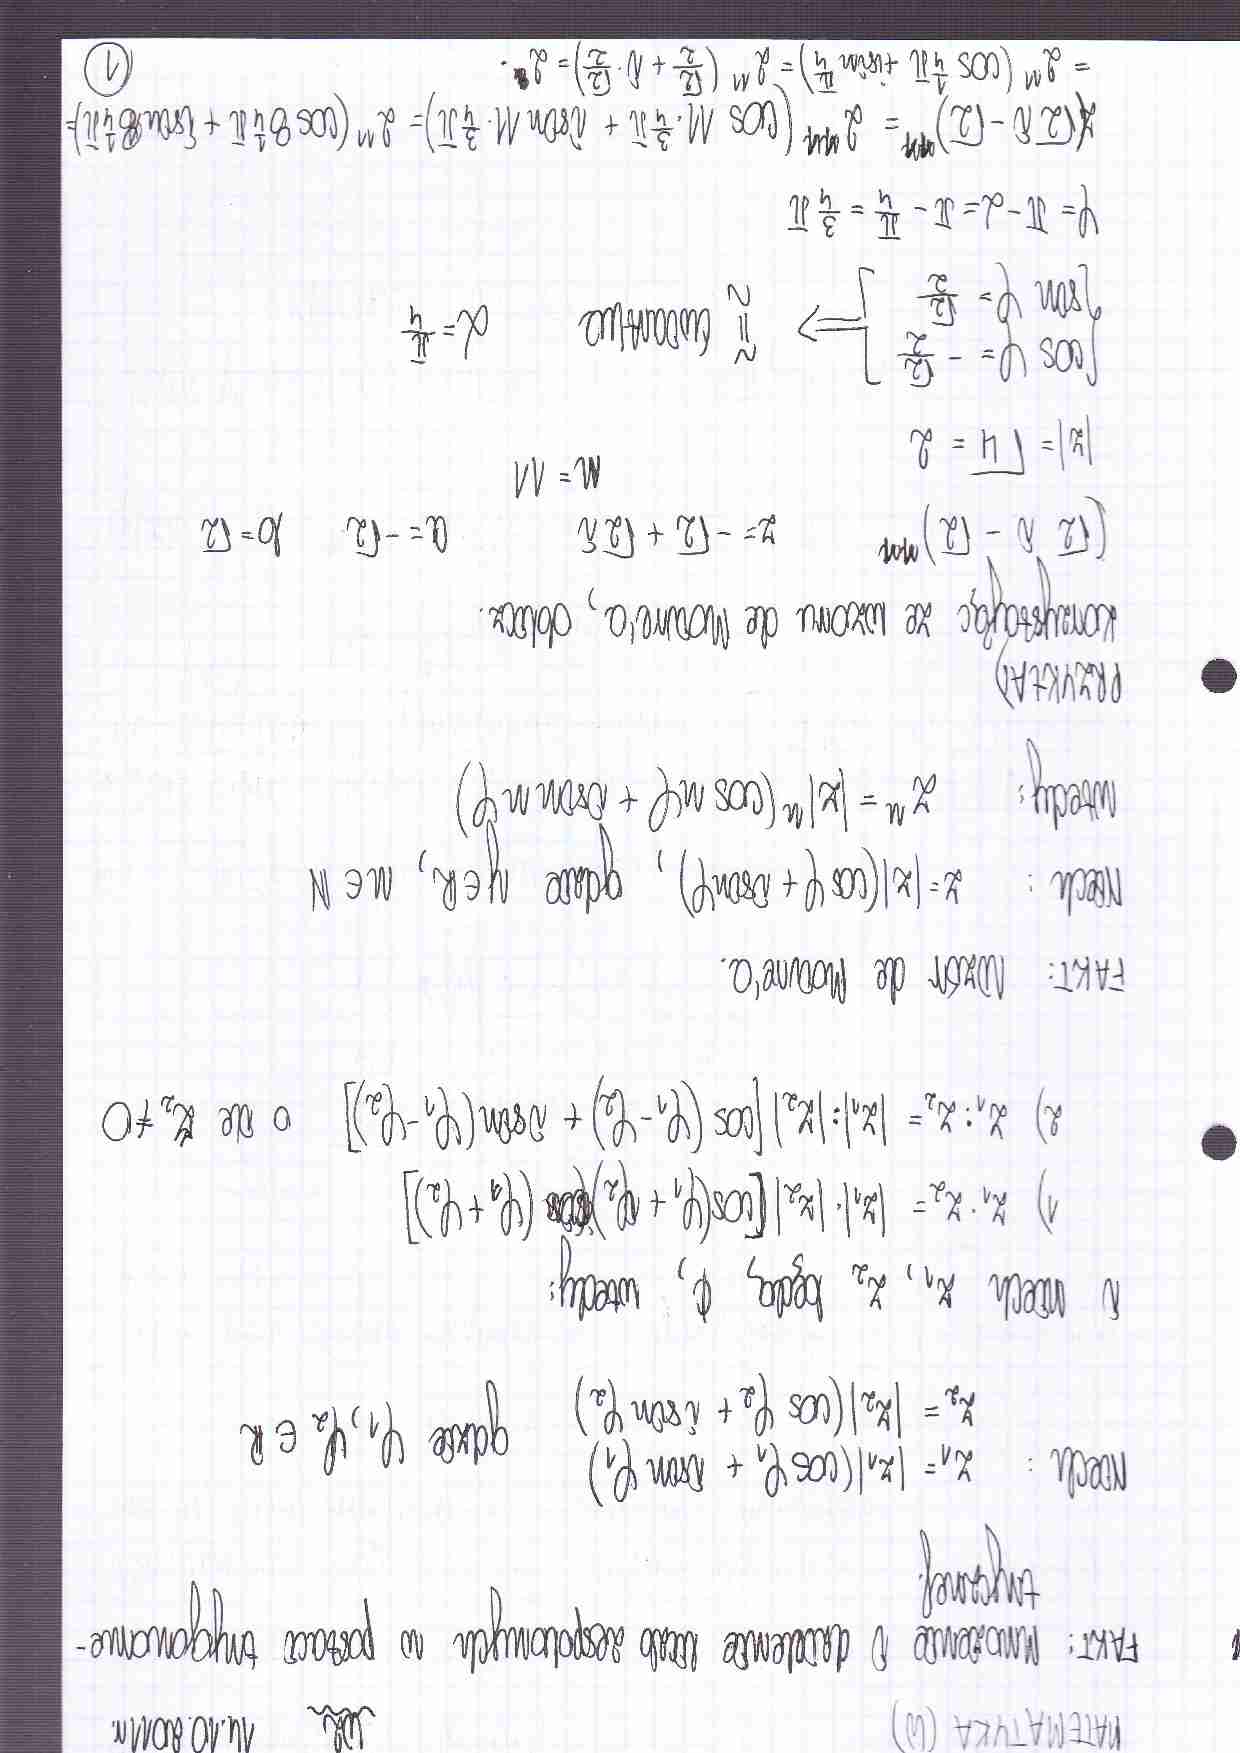 MATEMATYKA (W) W2 14.10.2011r.
FAKT: Mnożenie i dzielenie liczb zespolonych w postaci trygonome-
trycznej
Niech: z₁ = |z₁|(cos φ₁ + isin φ₁)
z₂ = |z₂|(cos φ₂ + isin φ₂) gdzie φ₁, φ₂ ∈ R
i niech z₁, z₂ będą ¢, wtedy:
1) z₁·z₂ = |z₁|·|z₂| [cos(φ₁ + φ₂) (φ₁ + φ₂)]
2) z₁:z₂ = |z₁|:|z₂| [cos(φ₁ - φ₂) + isin(φ₁ - φ₂)] o ile z₂ ≠ 0
FAKT: Wzór de Moivre'a.
Niech: z = |z|(cos φ + isin φ), gdzie φ ∈ R, n ∈ N
wtedy: zⁿ = |z|ⁿ (cos nφ + isin nφ)
PRZYKŁAD
korzystając ze wzoru de Moivre'a, oblicz.
(√2 i - √2)¹¹ z = -√2 + √2 i a = -√2 b = √2
n = 11
|z| = √4 = 2
{cos φ = -√2/2
{sin φ = √2/2 ] ⇒ II ćwiartka α = π/4
φ = π - α = π - π/4 = 3/4 π
(√2 i - √2)¹¹ = 2¹¹ (cos 11·3/4 π + isin 11·3/4 π) = 2¹¹ (cos 8 1/4 π + isin 8 1/4 π) =
= 2¹¹ (cos 1/4 π + isin π/4) = 2¹¹ (√2/2 + i·√2/2) = 2
1